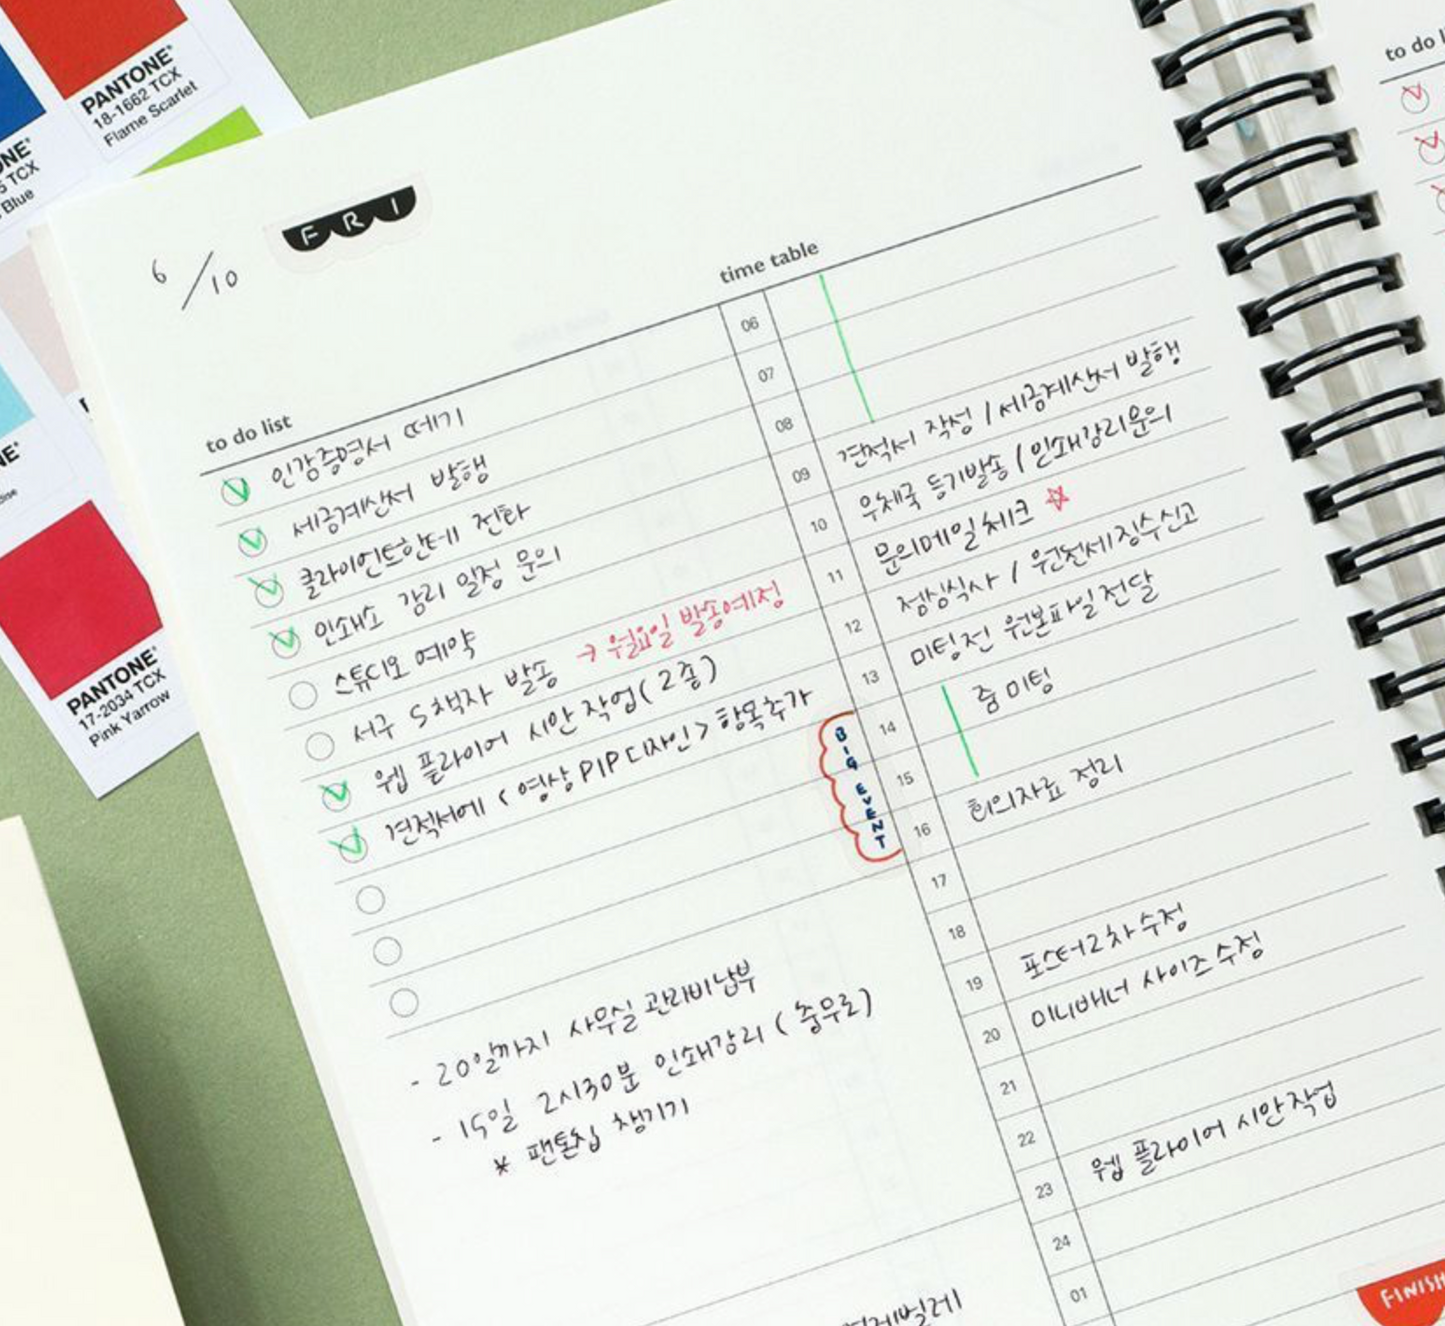 PANTONE®
18-1662 TCX
Flame Scarlet
TCX
Blue
PANTONE®
17-2034 TCX
Pink Yarrow
6/10
FRI
to do list
인감증명서 떼기
세금계산서 발행
클라이언트한테 전화
인쇄소 감리 일정 문의
스튜디오 예약
서구 S책자 발송 → 월요일 발송예정
웹 플라이어 시안 작업(2종)
견적서에 <영상 PIP디자인> 항목추가
- 20일까지 사무실 관리비납부
- 15일 2시30분 인쇄감리 (충무로)
* 팬톤칩 챙기기
time table
06
07
08
09 견적서 작성 / 세금계산서 발행
10 우체국 등기발송 / 인쇄감리문의
11 문의메일체크 ☆
12 점심식사 / 원천세 징수신고
13 미팅전 원본파일전달
14 줌미팅
15
16 회의자료 정리
17
18
19 포스터2차수정
20 미니배너 사이즈수정
21
22
23 웹 플라이어 시안작업
24
01
BIG EVENT
to do
FINISH